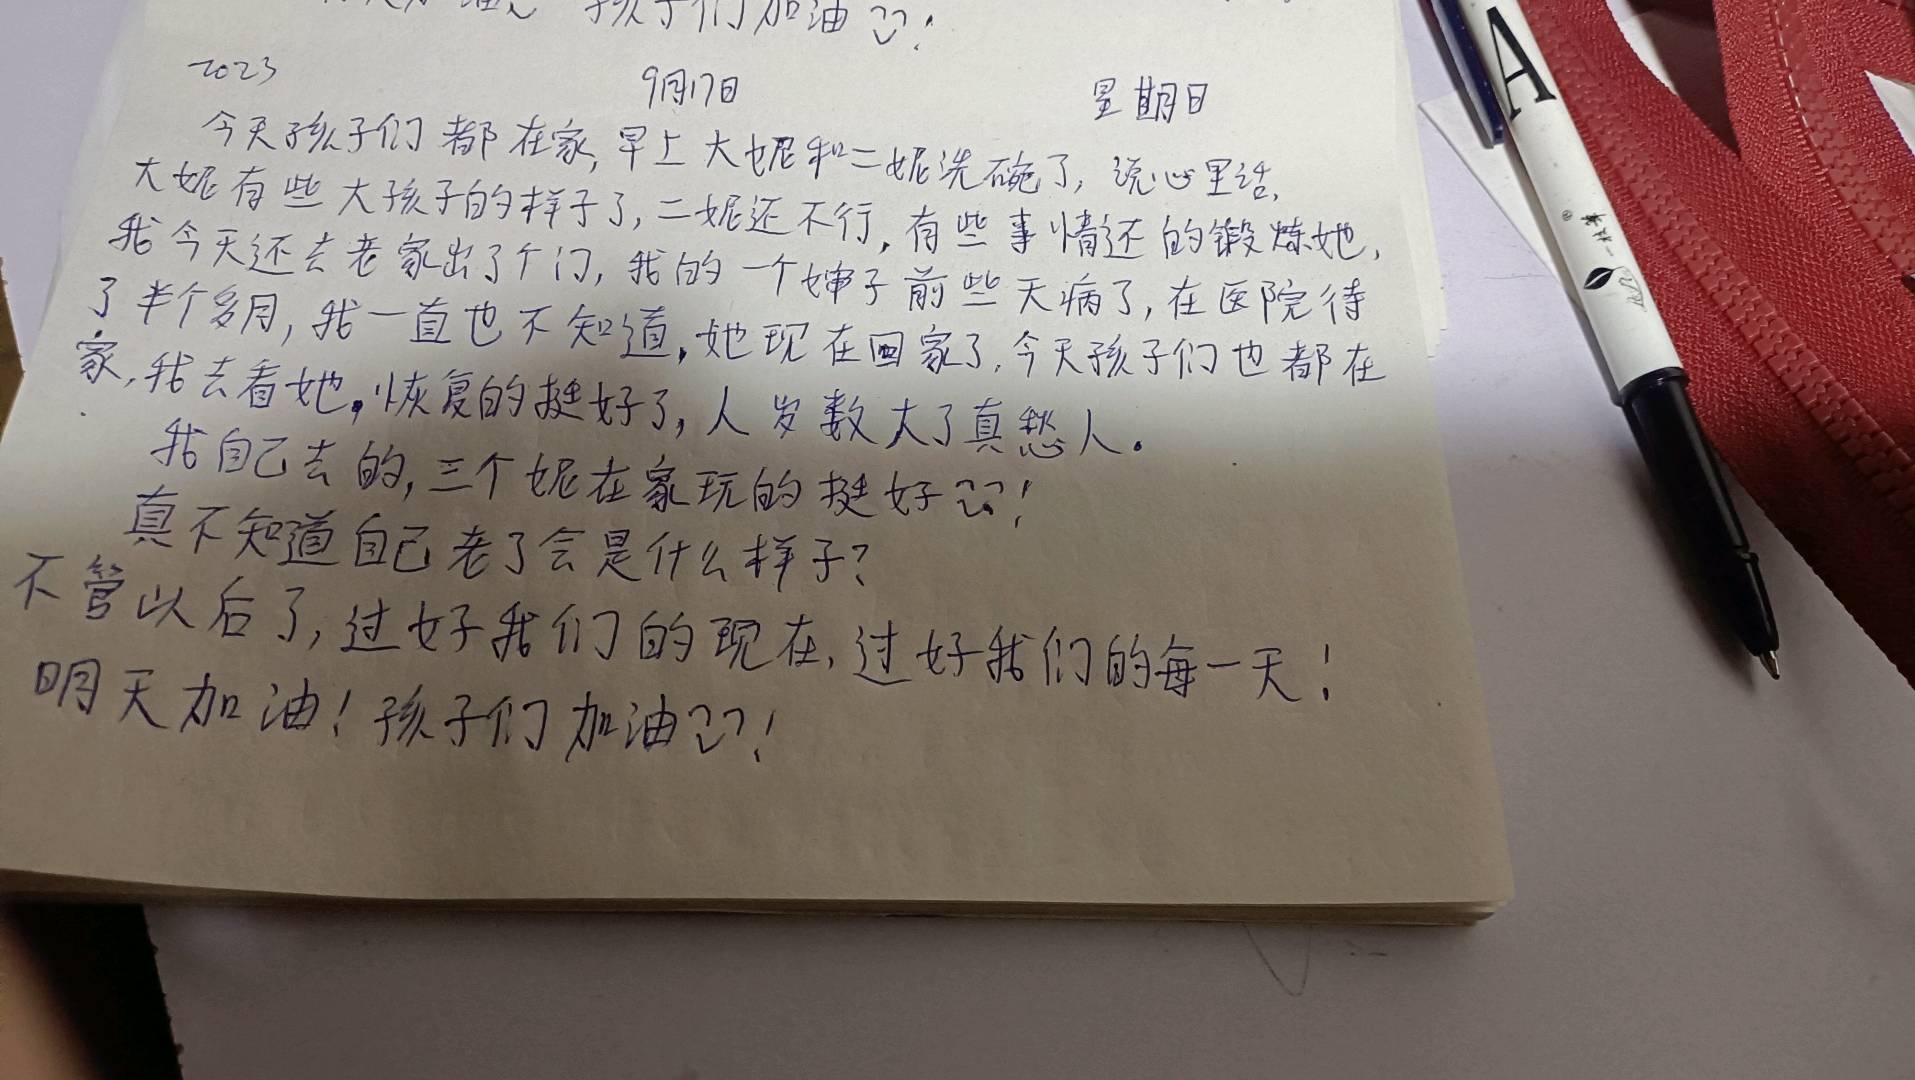 孩子们加油!
2023 9月17日 星期日
今天孩子们都在家,早上大妮和二妮洗碗了,说心里话,
大妮有些大孩子的样子了,二妮还不行,有些事情还的锻炼她,
我今天还去老家出了个门,我的一个婶子前些天病了,在医院待
了半个多月,我一直也不知道,她现在回家了,今天孩子们也都在
家,我去看她,恢复的挺好了,人岁数大了真愁人。
我自己去的,三个妮在家玩的挺好!
真不知道自己老了会是什么样子?
不管以后了,过好我们的现在,过好我们的每一天!
明天加油!孩子们加油!
A